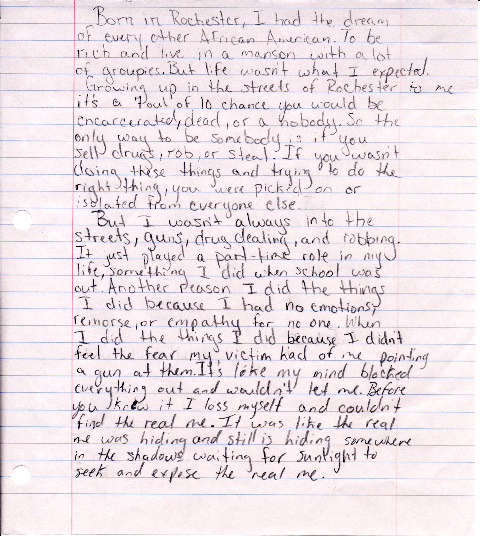 Born in Rochester, I had the dream
of every other African American. To be
rich and live in a manson with a lot
of groupies. But life wasn't what I expected.
Growing up in the streets of Rochester to me
it's a 7 out of 10 chance you would be
encarcerated, dead, or a nobody. So the
only way to be somebody is if you
sell drugs, rob, or steal. If you wasn't
doing these things and trying to do the
right thing, you were picked on or
isolated from everyone else.
But I wasn't always into the
streets, guns, drug dealing, and robbing.
It just played a part-time role in my
life, something I did when school was
out. Another reason I did the things
I did because I had no emotions,
remorse, or empathy for no one. When
I did the things I did because I didn't
feel the fear my victim had of me pointing
a gun at them. It's like my mind blocked
everything out and wouldn't let me. Before
you know it I loss myself and couldn't
find the real me. It was like the real
me was hiding and still is hiding somewhere
in the shadows waiting for sunlight to
seek and expose the real me.